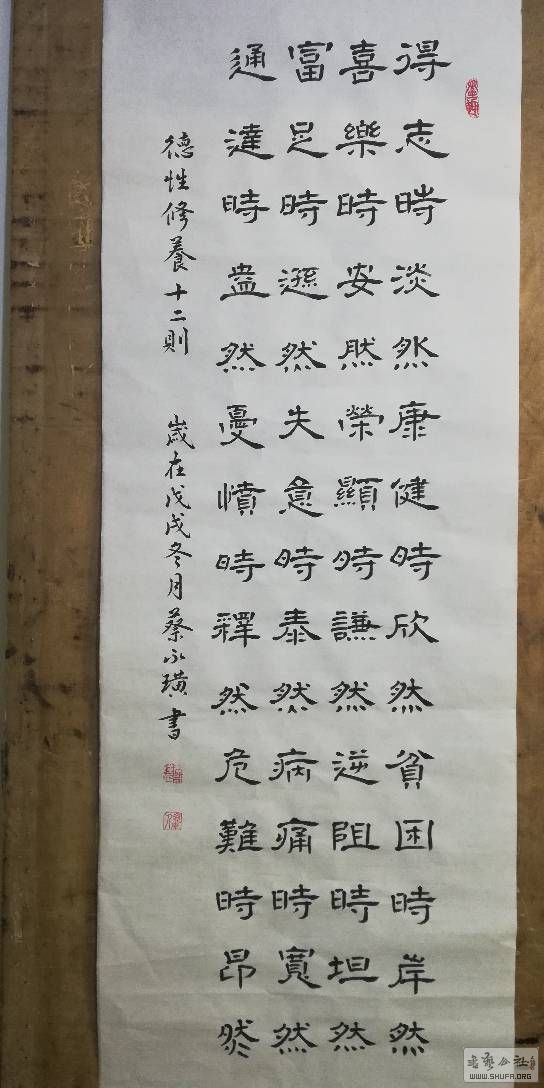 得志時淡然康健時欣然貧困時岸然
喜樂時安然榮顯時謙然逆阻時坦然
富足時遜然失意時泰然病痛時寬然
通達時盎然憂憤時釋然危難時昂然
德性修養十二則 歲在戊戌冬月蔡永璜書
书艺公社
WWW.SHUFA.ORG